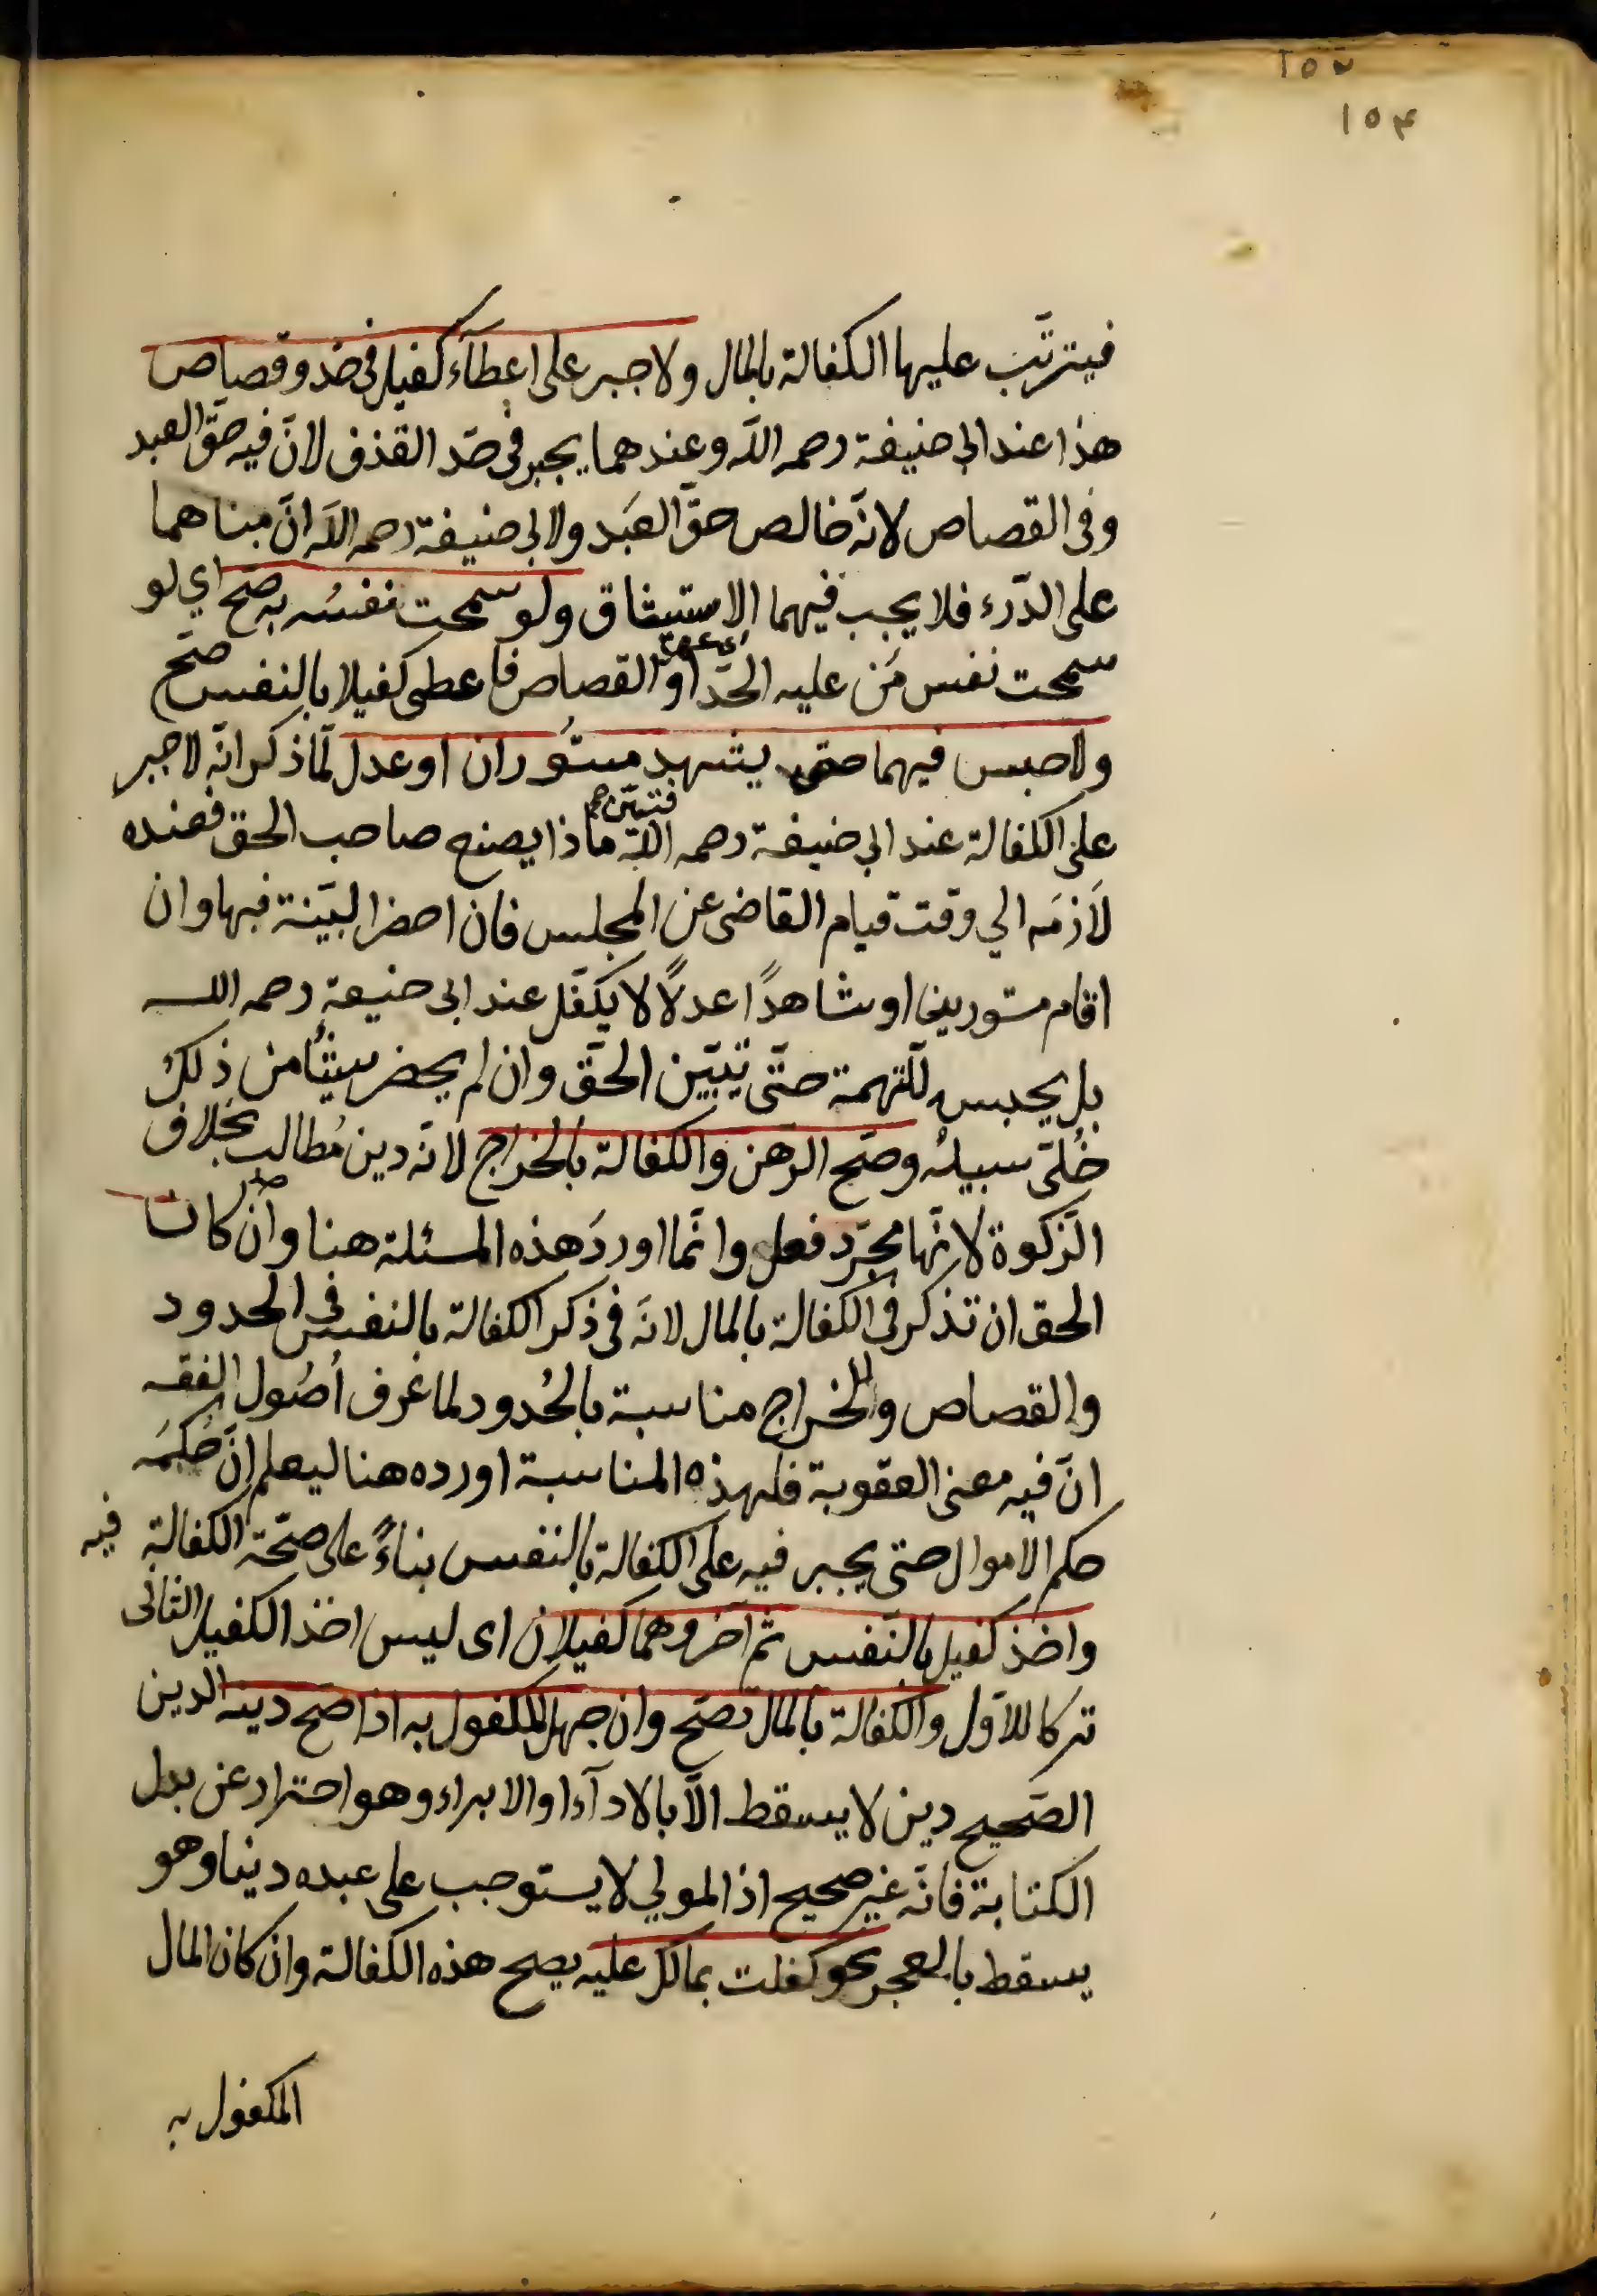 ١٥٣
١٥٤
فيترتّب عليها الكفالة بالمال ولا جبر على اعطآء كفيل فى حد و قصاص
هذا عند ابي حنيفة رحمه اللّه وعندهما يجبر فى حدّ القذف لانّ فيه حقّ العبد
وفى القصاص لانّه خالص حقّ العَبد ولابي حنيفة رحمه اللّه انّ مبناهما
على الدّرء فلا يجب فيهما الاستيثاق ولو سمحت نفسُه به صحّ اي لو
سمحت نفس مَن عليه الحدّ او القصاص فاعطى كفيلا بالنفس صحّ
ولا حبس فيهما حتى يشهد مستُوران او عدل لمّا ذكر انّه لا جبر
على الكفالة عند ابي حنيفة رحمه اللّه فتبيّن ماذا يصنع صاحب الحق فعنده
لَازمَه الي وقت قيام القاضى عن المجلس فان احضر البيّنة فبها وان
اقام مستورين او شاهدًا عدلًا لا يكفّل عند ابى حنيفة رحمه اللـه
بل يحبس للتهمة حتّى تبيّن الحقّ وان لم يحضر شيئًا من ذلك
خُلّى سبيلُه وصحّ الرّهن والكفالة بالخراج لانّه دين مُطالب بخلاف
الزّكوة لانّها مجرّد فعل وانّما اوردَ هذه المسئلة هنا وان كان
الحق ان تذكر فى الكفالة بالمال لانّه فى ذكر الكفالة بالنفس فى الحدود
والقصاص وللخراج مناسبة بالحُدود لما عُرف اُصُول الفقه
انّ فيه معنى العقوبة فلهذه المناسبة اورده هنا ليعلم انّ حُكمَه
حكم الاموال حتى يجبر فيه على الكفالة بالنفس بناءً على صحّة الكفالة فيه
واخذ كفيل بالنّفس ثم آخر وهما كفيلان اى ليس اخذ الكفيل الثانى
تركا للاوّل والكفالة بالمال تصحّ وان جهل المكفول به اذا صحّ دينه الدين
الصّحيح دين لا يسقط الّا بالادآء او الابراء وهو احتراز عن بدل
الكتابة فانّه غير صحيح اذ المولي لا يستوجب على عبده دينا وهو
يسقط بالعجز نحو كفلت بمالك عليه يصح هذه الكفالة وان كان المال
المكفول به